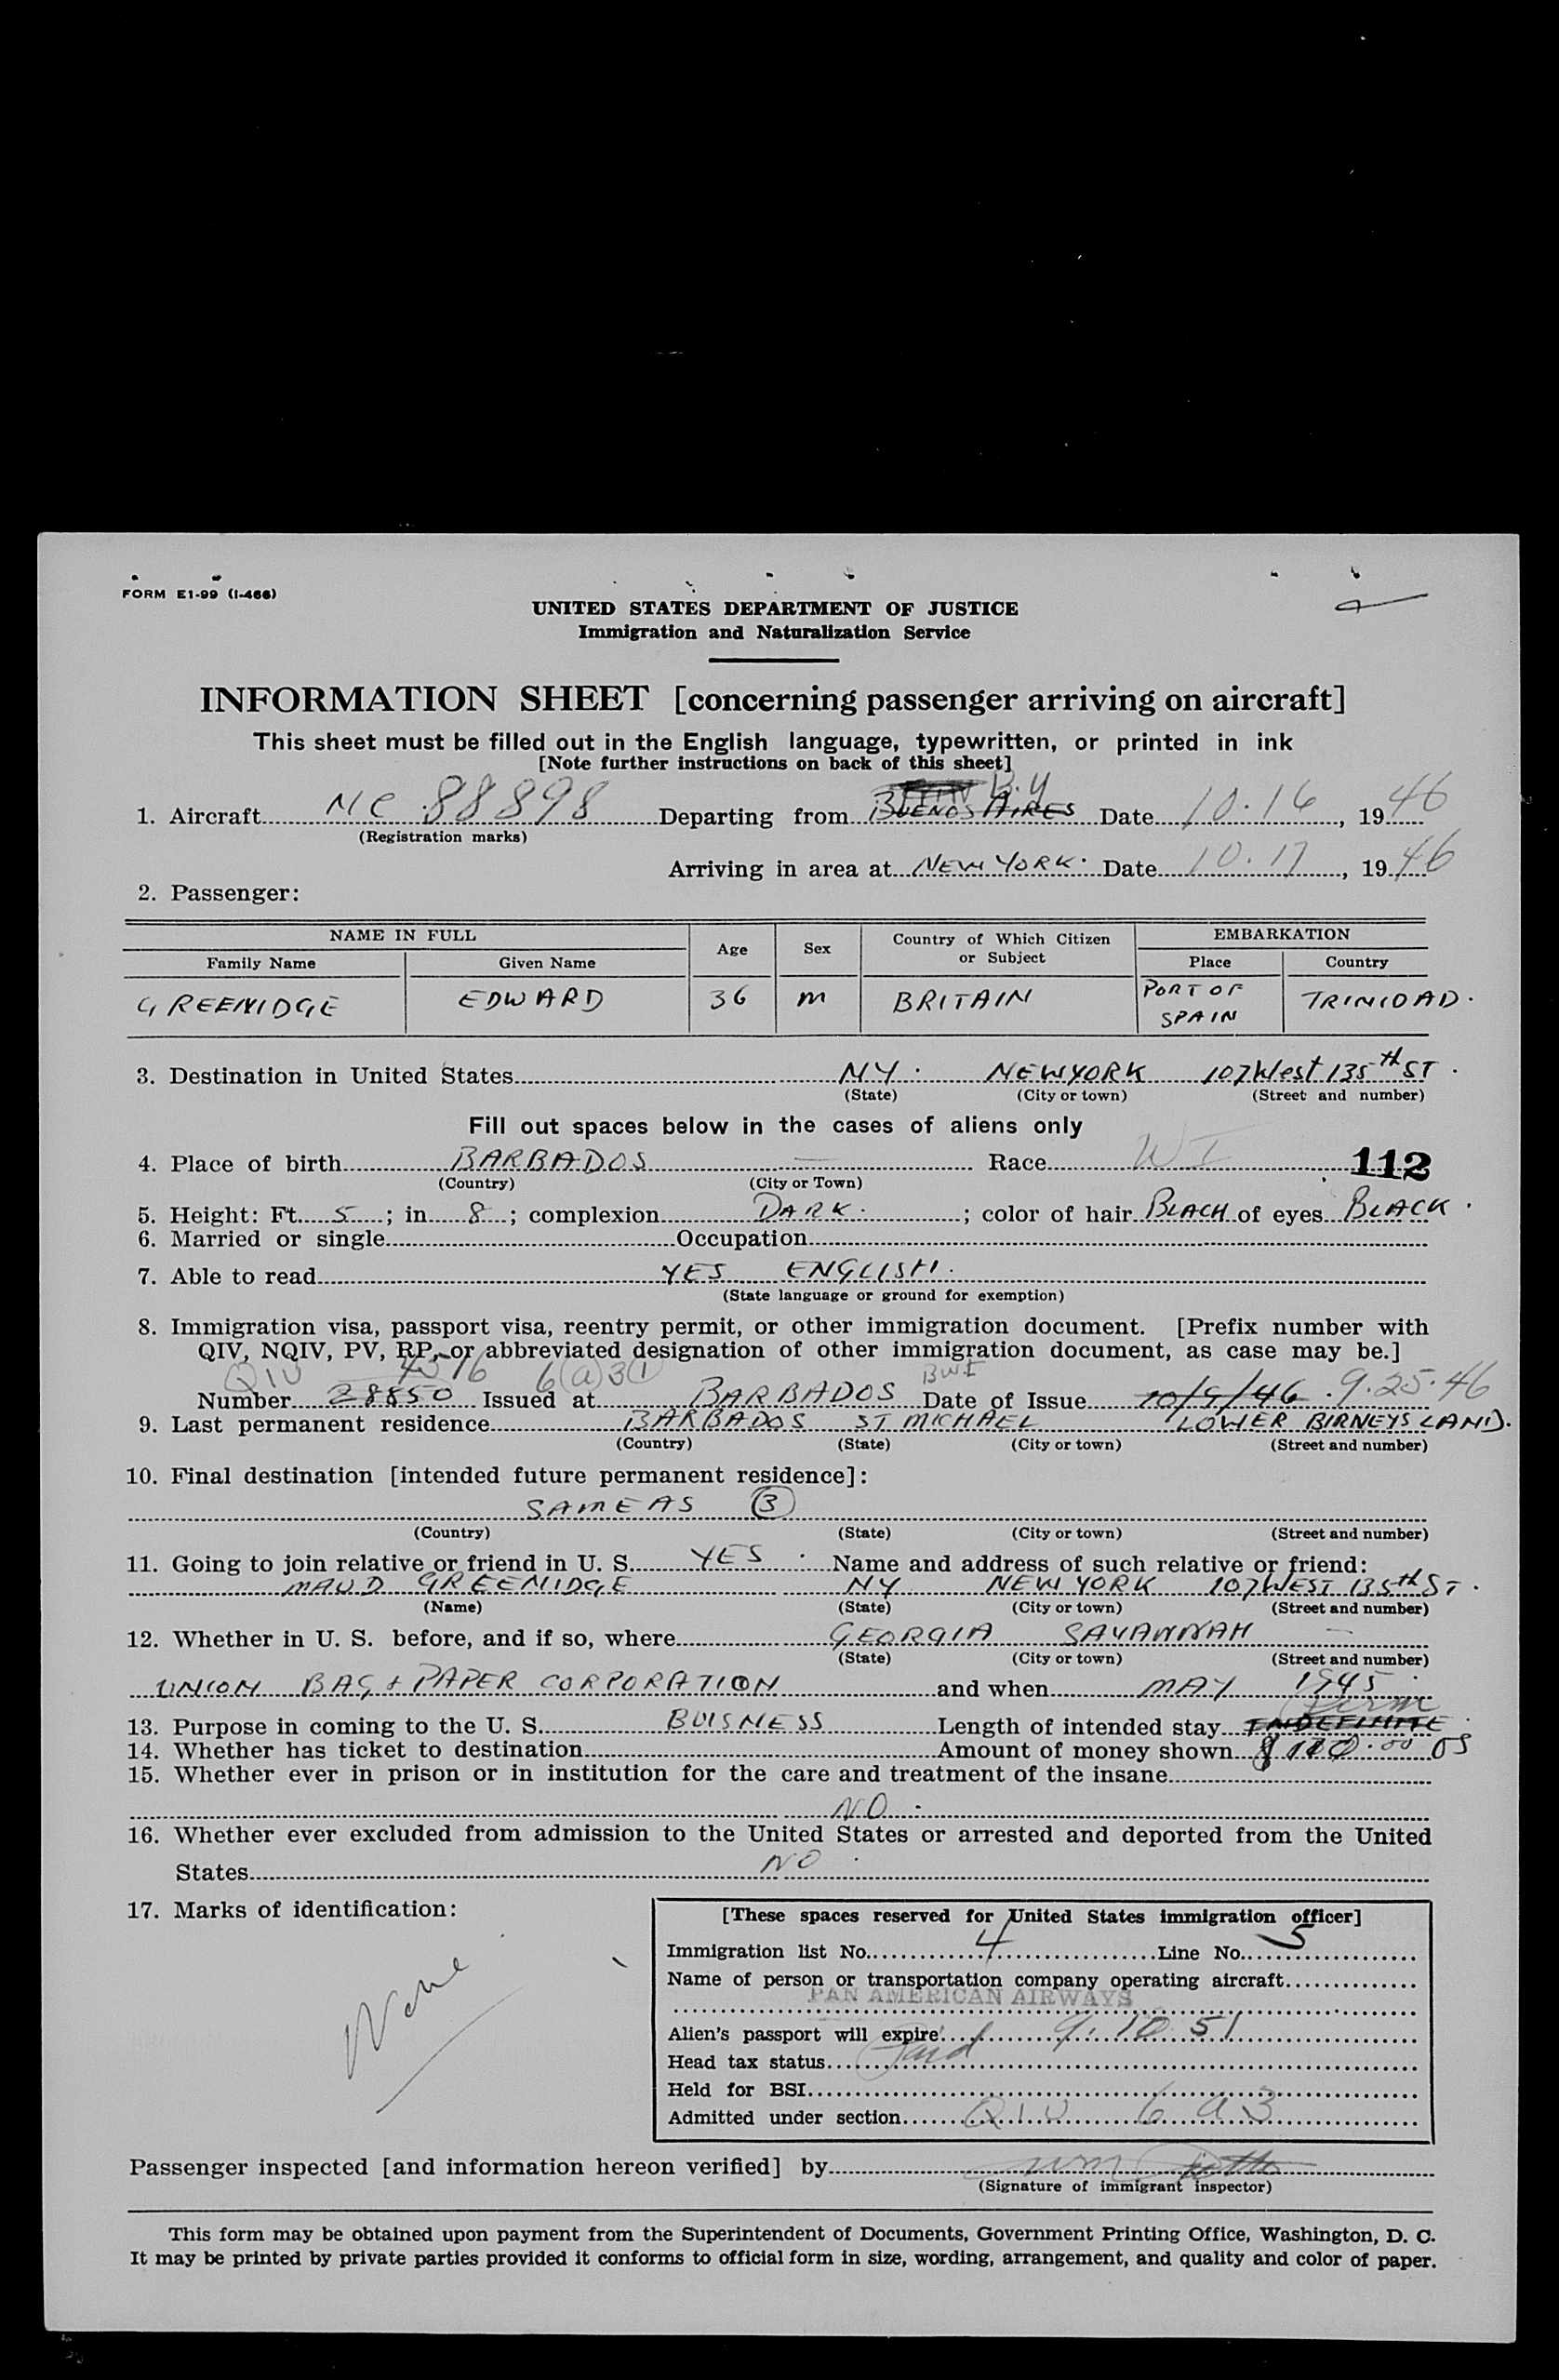 FORM E1-99 (I-466)
UNITED STATES DEPARTMENT OF JUSTICE
Immigration and Naturalization Service
INFORMATION SHEET [concerning passenger arriving on aircraft]
This sheet must be filled out in the English language, typewritten, or printed in ink
[Note further instructions on back of this sheet]
1. Aircraft NC 88898 Departing from BUENOS AIRES B.A Date 10.16, 1946
(Registration marks)
Arriving in area at NEW YORK. Date 10.17, 1946
2. Passenger:
NAME IN FULL Age Sex Country of Which Citizen or Subject EMBARKATION
Family Name Given Name Place Country
GREENIDGE EDWARD 36 M BRITAIN PORT OF SPAIN TRINIDAD.
3. Destination in United States NY. NEWYORK 107 West 135th ST.
(State) (City or town) (Street and number)
Fill out spaces below in the cases of aliens only
4. Place of birth BARBADOS — Race W I 112
(Country) (City or Town)
5. Height: Ft. 5; in 8; complexion DARK.; color of hair BLACH of eyes BLACK.
6. Married or single Occupation
7. Able to read YES ENGLISH.
(State language or ground for exemption)
8. Immigration visa, passport visa, reentry permit, or other immigration document. [Prefix number with
QIV, NQIV, PV, RP, or abbreviated designation of other immigration document, as case may be.]
QIV 4516 6(a)3(1) BWI
Number 28850 Issued at BARBADOS Date of Issue 10/9/46 9.25.46
9. Last permanent residence BARBADOS ST MICHAEL LOWER BIRNEYS LAND.
(Country) (State) (City or town) (Street and number)
10. Final destination [intended future permanent residence]:
SAME AS 3
(Country) (State) (City or town) (Street and number)
11. Going to join relative or friend in U. S. YES. Name and address of such relative or friend:
MAUD GREENIDGE NY NEW YORK 107 WEST 135th ST.
(Name) (State) (City or town) (Street and number)
12. Whether in U. S. before, and if so, where GEORGIA SAVANNAH —
(State) (City or town) (Street and number)
UNION BAG & PAPER CORPORATION and when MAY 1945.
13. Purpose in coming to the U. S. BUISNESS Length of intended stay INDEFINITE
14. Whether has ticket to destination Amount of money shown $ 100.00 US
15. Whether ever in prison or in institution for the care and treatment of the insane
NO.
16. Whether ever excluded from admission to the United States or arrested and deported from the United
States NO.
17. Marks of identification:
None
[These spaces reserved for United States immigration officer]
Immigration list No. 4 Line No. 5
Name of person or transportation company operating aircraft
PAN AMERICAN AIRWAYS
Alien's passport will expire 9.10.51
Head tax status Paid
Held for BSI
Admitted under section QIV 6 a 3
Passenger inspected [and information hereon verified] by
(Signature of immigrant inspector)
This form may be obtained upon payment from the Superintendent of Documents, Government Printing Office, Washington, D. C.
It may be printed by private parties provided it conforms to official form in size, wording, arrangement, and quality and color of paper.